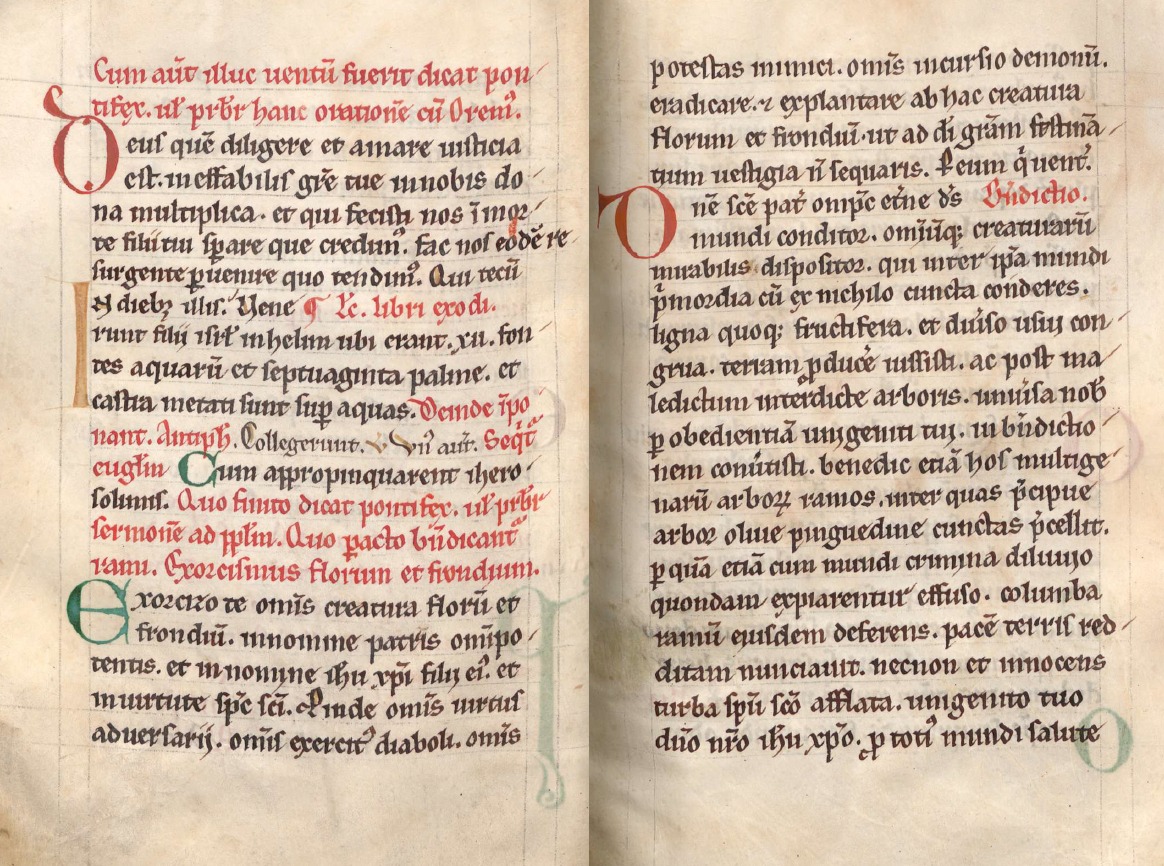 Cum aūt illuc uentū fuerit dicat pon
tifex. ul̄ prb̄r hanc orationē cū Orem̄.
Deus quē diligere et amare iusticia
est. ineffabilis grē tue in nobis do
na multiplica. et qui fecisti nos ī mor
te filii tui sꝑare que credim᷒. fac nos eodē re
surgente ꝑuenire quo tendim᷒. Qui tecū
In dieb; illis. Uene ¶ Lc̄. libri exodi.
runt filij isrl̄ in helim ubi erant. xii. fon
tes aquarū et septuaginta palme. et
castra metati sunt suꝑ aquas. Deinde īpo
nant. Antiph̄. Collegerunt. V Vn̄ aūt. Seqt̄
euglm̄ Cum appropinquarent ihero
solimis. Quo finito dicat pontifex. ul̄ prb̄r
sermonē ad ppl̄m. Quo ꝑacto bn̄dicant᷑
rami. Exorcismus florum et frondium.
Exorcizo te om̄is creatura florū et
frondiū. in nomine patris om̄ipo
tentis. et in nomine ihu xp̄i filij ei᷒. et
in uirtute sp̄c sc̄i. Proinde om̄is uirtus
aduersarij. om̄is exercit᷒ diaboli. om̄is
potestas inimici. om̄is incursio demonū.
eradicare. ⁊ explantare ab hac creatura
florum et frondiū. ut ad dī grām festinā
tium uestigia n̄ sequaris. Per eum q̄ uent̄.
Dn̄e sc̄e pat̄ omp̄c etn̄e ds̄ Bn̄dictio.
mundi conditor. omīūq; creaturarū
mirabilis dispositor. qui inter ip̄a mundi
p̄mordia cū ex nichilo cuncta conderes.
ligna quoq; fructifera. et diu̾so usui con
grua. terram ꝓducē iussisti. ac post ma
ledictum interdicte arboris. uniu̾sa nob̄
ꝑ obedientiā unigeniti tui. in bn̄dictio
nem conu̾tisti. benedic etiā hos multige
narū arborꝝ ramos. inter quas p̄cipue
arbor oliue pinguedine cunctas p̄cellit.
ꝑ quā etiā cum mundi crimina diluuio
quondam expiarentur effuso. columba
ramū eiusdem deferens. pacē terris red
ditam nunciauit. necnon et innocens
turba sp̄u sc̄o afflata. unigenito tuo
dn̄o nr̄o ihu xp̄o. ꝓ toti᷒ mundi salute